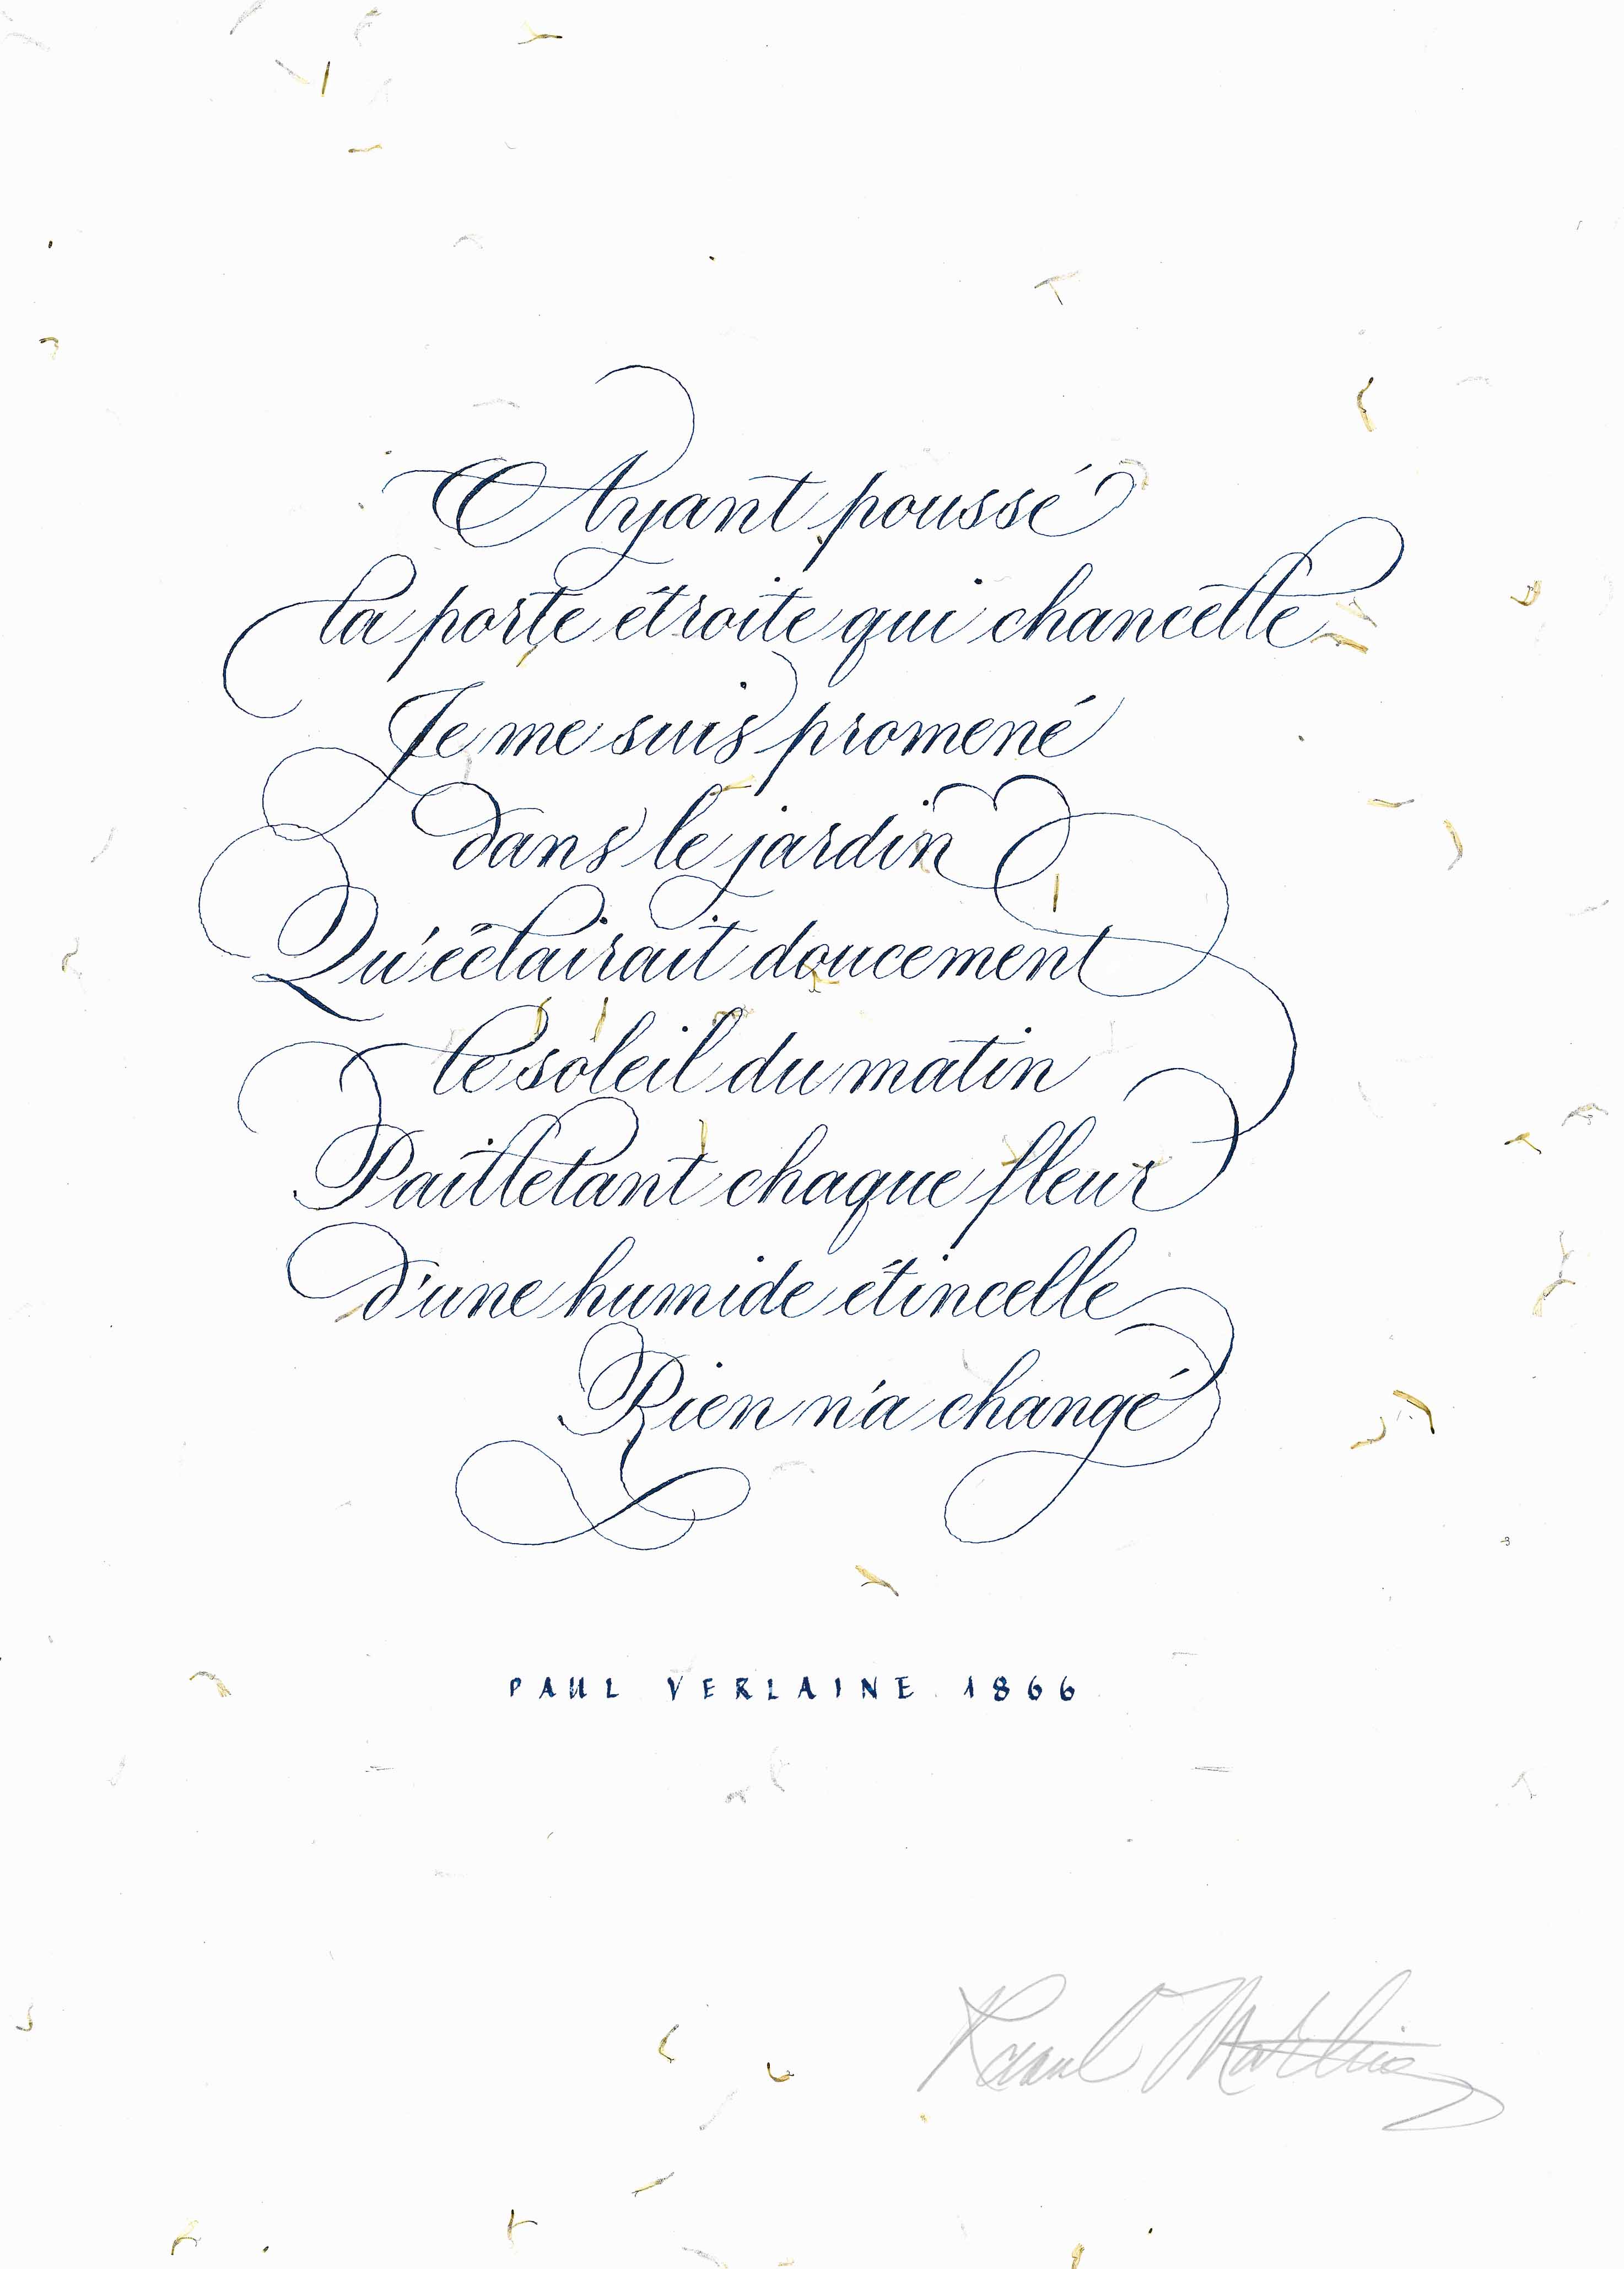 Ayant poussé
la porte étroite qui chancelle
Je me suis promené
dans le jardin
Qu'éclairait doucement
le soleil du matin
Pailletant chaque fleur
d'une humide étincelle
Rien n'a changé
PAUL VERLAINE 1866